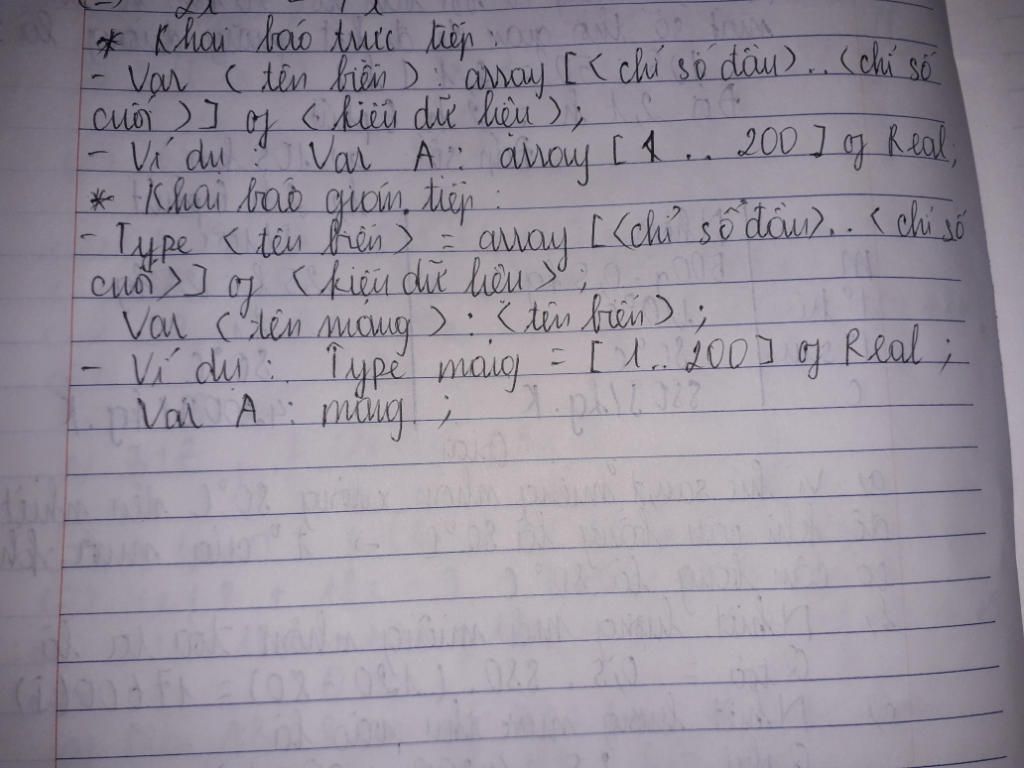 * Khai báo trực tiếp:
- Var < tên biến > : array [ < chỉ số đầu > .. < chỉ số
cuối > ] of < kiểu dữ liệu > ;
- Ví dụ : Var A : array [ 1 .. 200 ] of Real;
* Khai báo gián tiếp :
- Type < tên biến > = array [ < chỉ số đầu > .. < chỉ số
cuối > ] of < kiểu dữ liệu > ;
Var < tên mảng > : < tên biến > ;
- Ví dụ : Type mảng = [ 1 .. 200 ] of Real ;
Var A : mảng ;